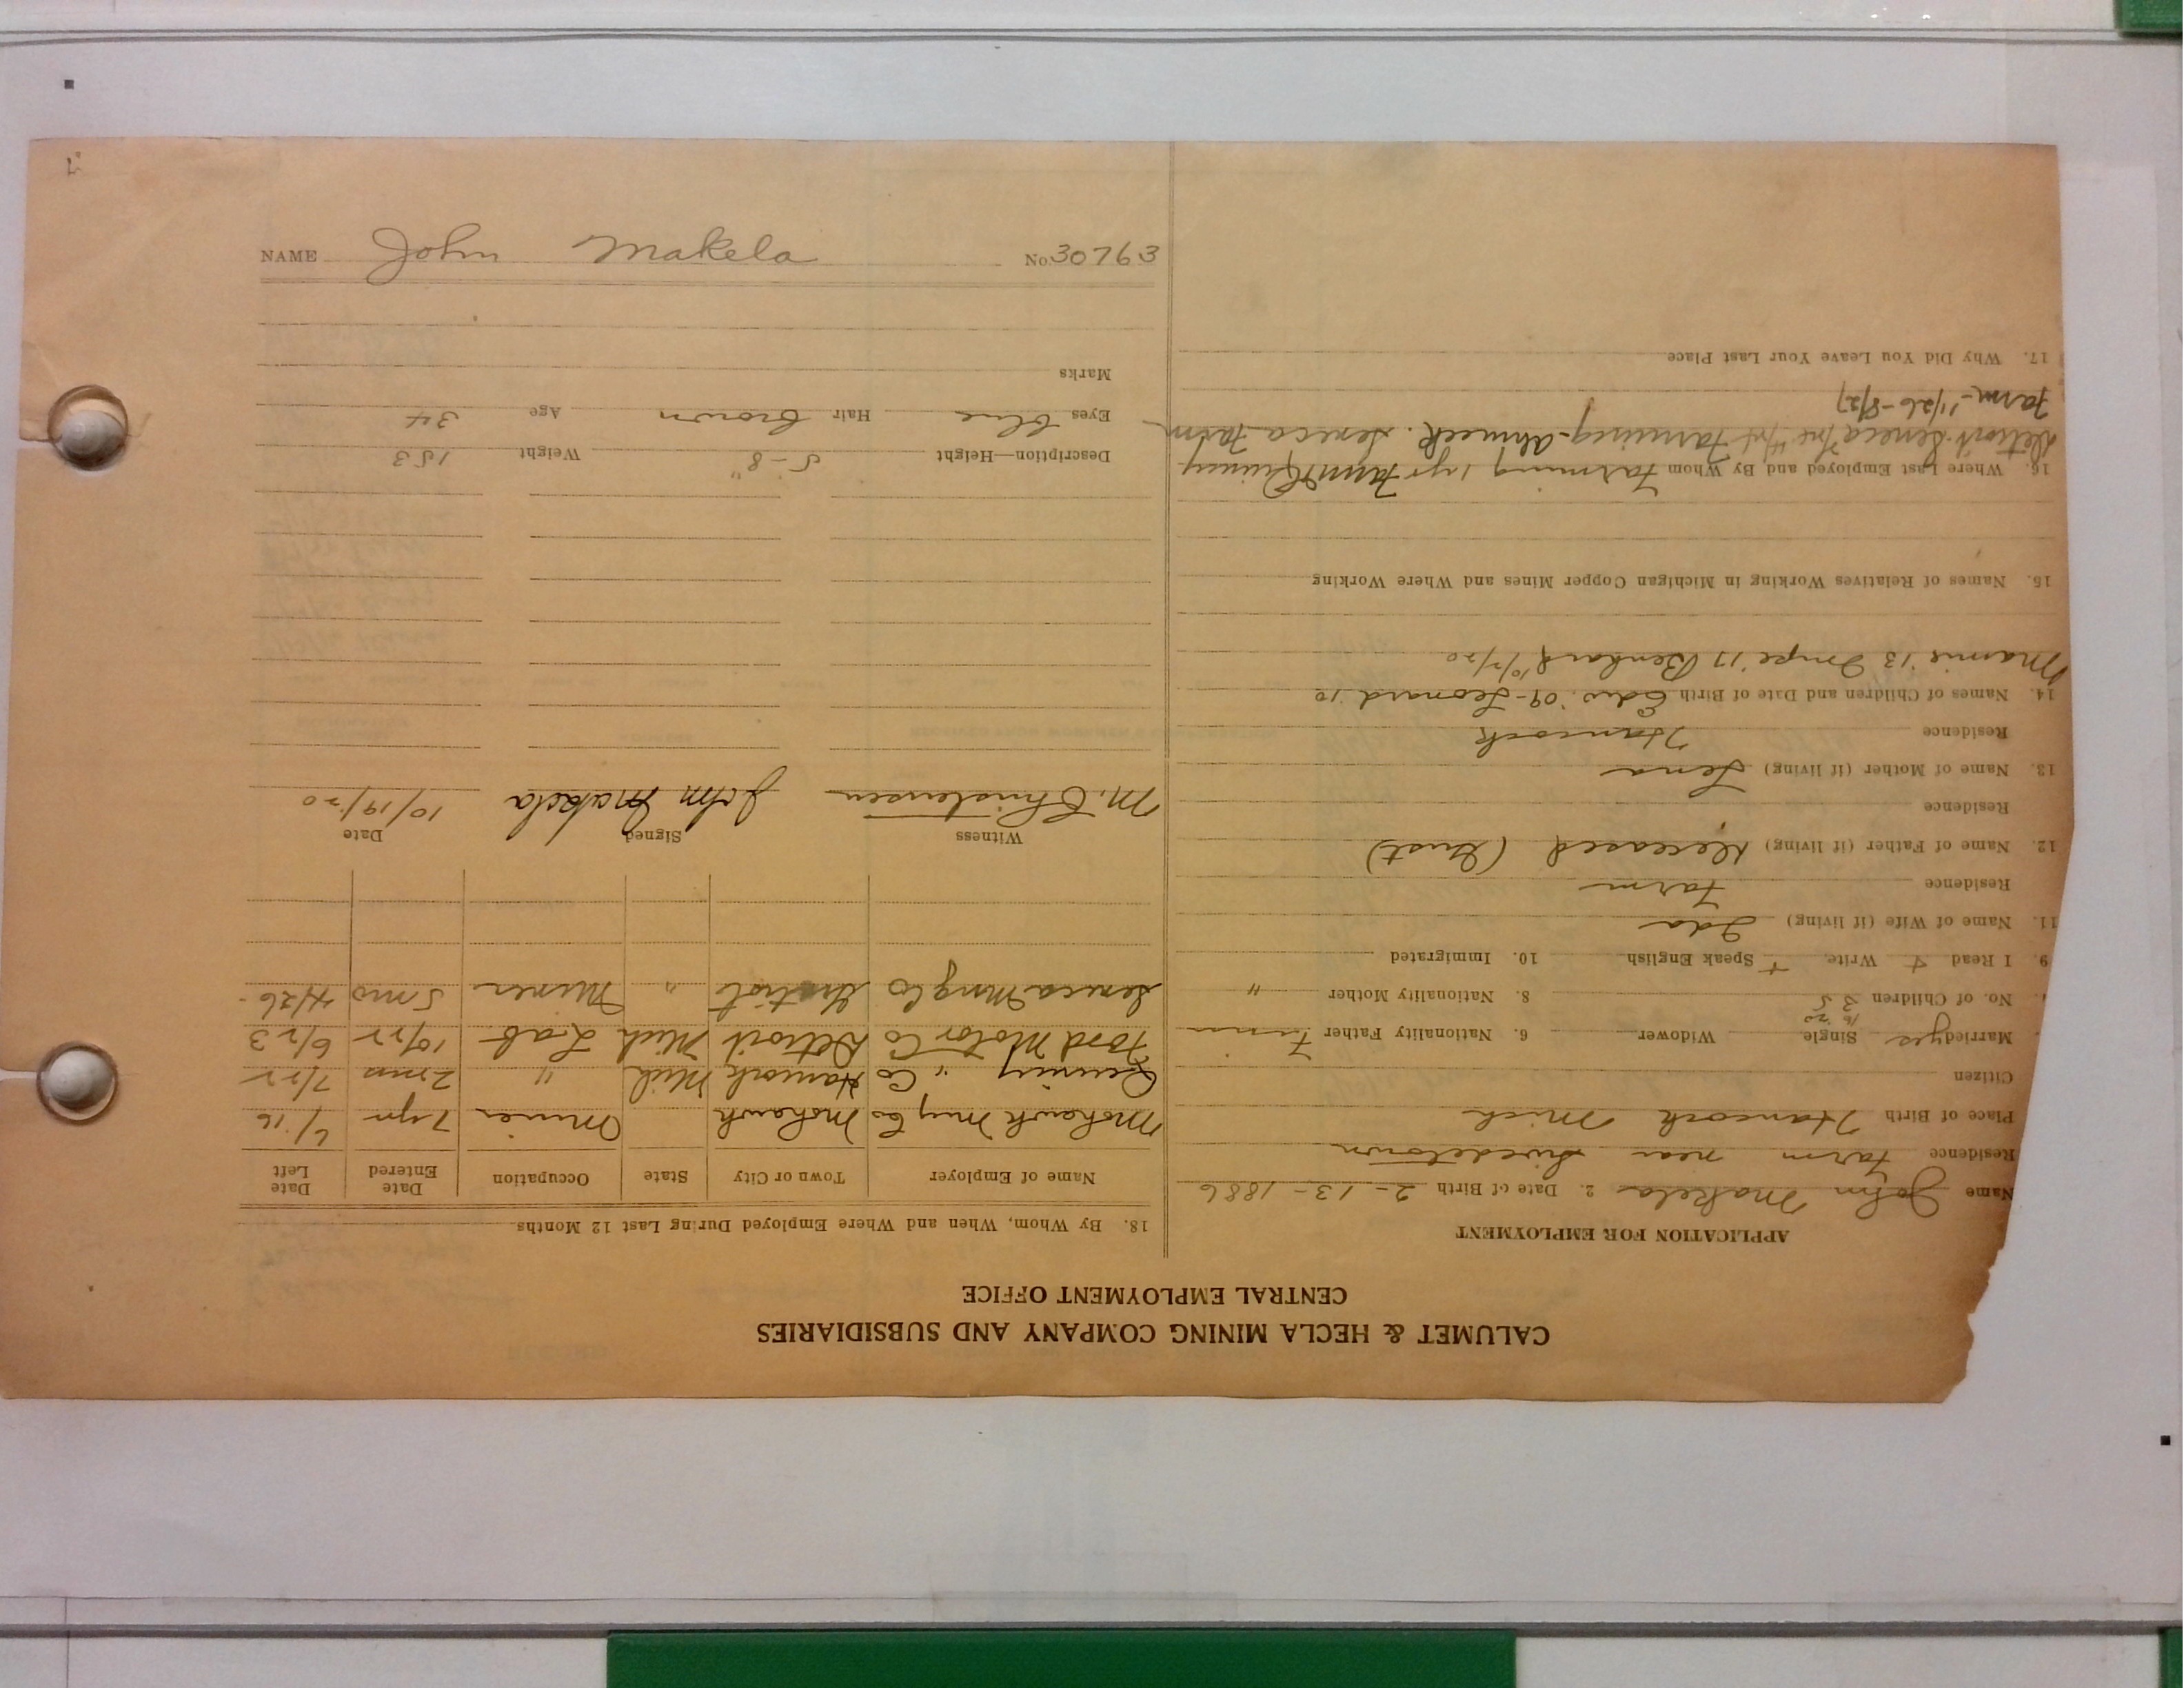 CALUMET & HECLA MINING COMPANY AND SUBSIDIARIES
CENTRAL EMPLOYMENT OFFICE
APPLICATION FOR EMPLOYMENT
Name John Makela 2. Date of Birth 2-13-1886
Residence Farm near Swedetown
Place of Birth Hancock Mich
Citizen
Married yes Single Widower 6. Nationality Father Finn
16 20
No. of Children 3 5 8. Nationality Mother "
9. I Read + Write. + Speak English 10. Immigrated
11. Name of Wife (if living) Ida
Residence Farm
12. Name of Father (if living) Deceased (Gust)
Residence
13. Name of Mother (if living) Lena
Residence Hancock
14. Names of Children and Date of Birth Edw. '09 - Leonard '10
Mamie '13 '17 10/2/20
15. Names of Relatives Working in Michigan Copper Mines and Where Working
16. Where Last Employed and By Whom Farming 1 yr Farm & Quincy
Detroit. Seneca Farming - Ahmeek. Seneca Farm
Farm - 11/26 - 8/27
17. Why Did You Leave Your Last Place
18. By Whom, When and Where Employed During Last 12 Months
Name of Employer Town or City State Occupation Date Entered Date Left
Mohawk Mng Co Mohawk Miner 7 yrs 6/16
Quincy " Co Hancock Mich " 2 mos 7/22
Ford Motor Co Detroit Mich Lab 10/22 6/23
Seneca Mng Co Gratiot " Miner 5 mos 4/26-
Witness Signed Date
M. Christensen John Makela 10/19/20
Description—Height 5-8" Weight 153
Eyes blue Hair brown Age 34
Marks
NAME John Makela No. 30763